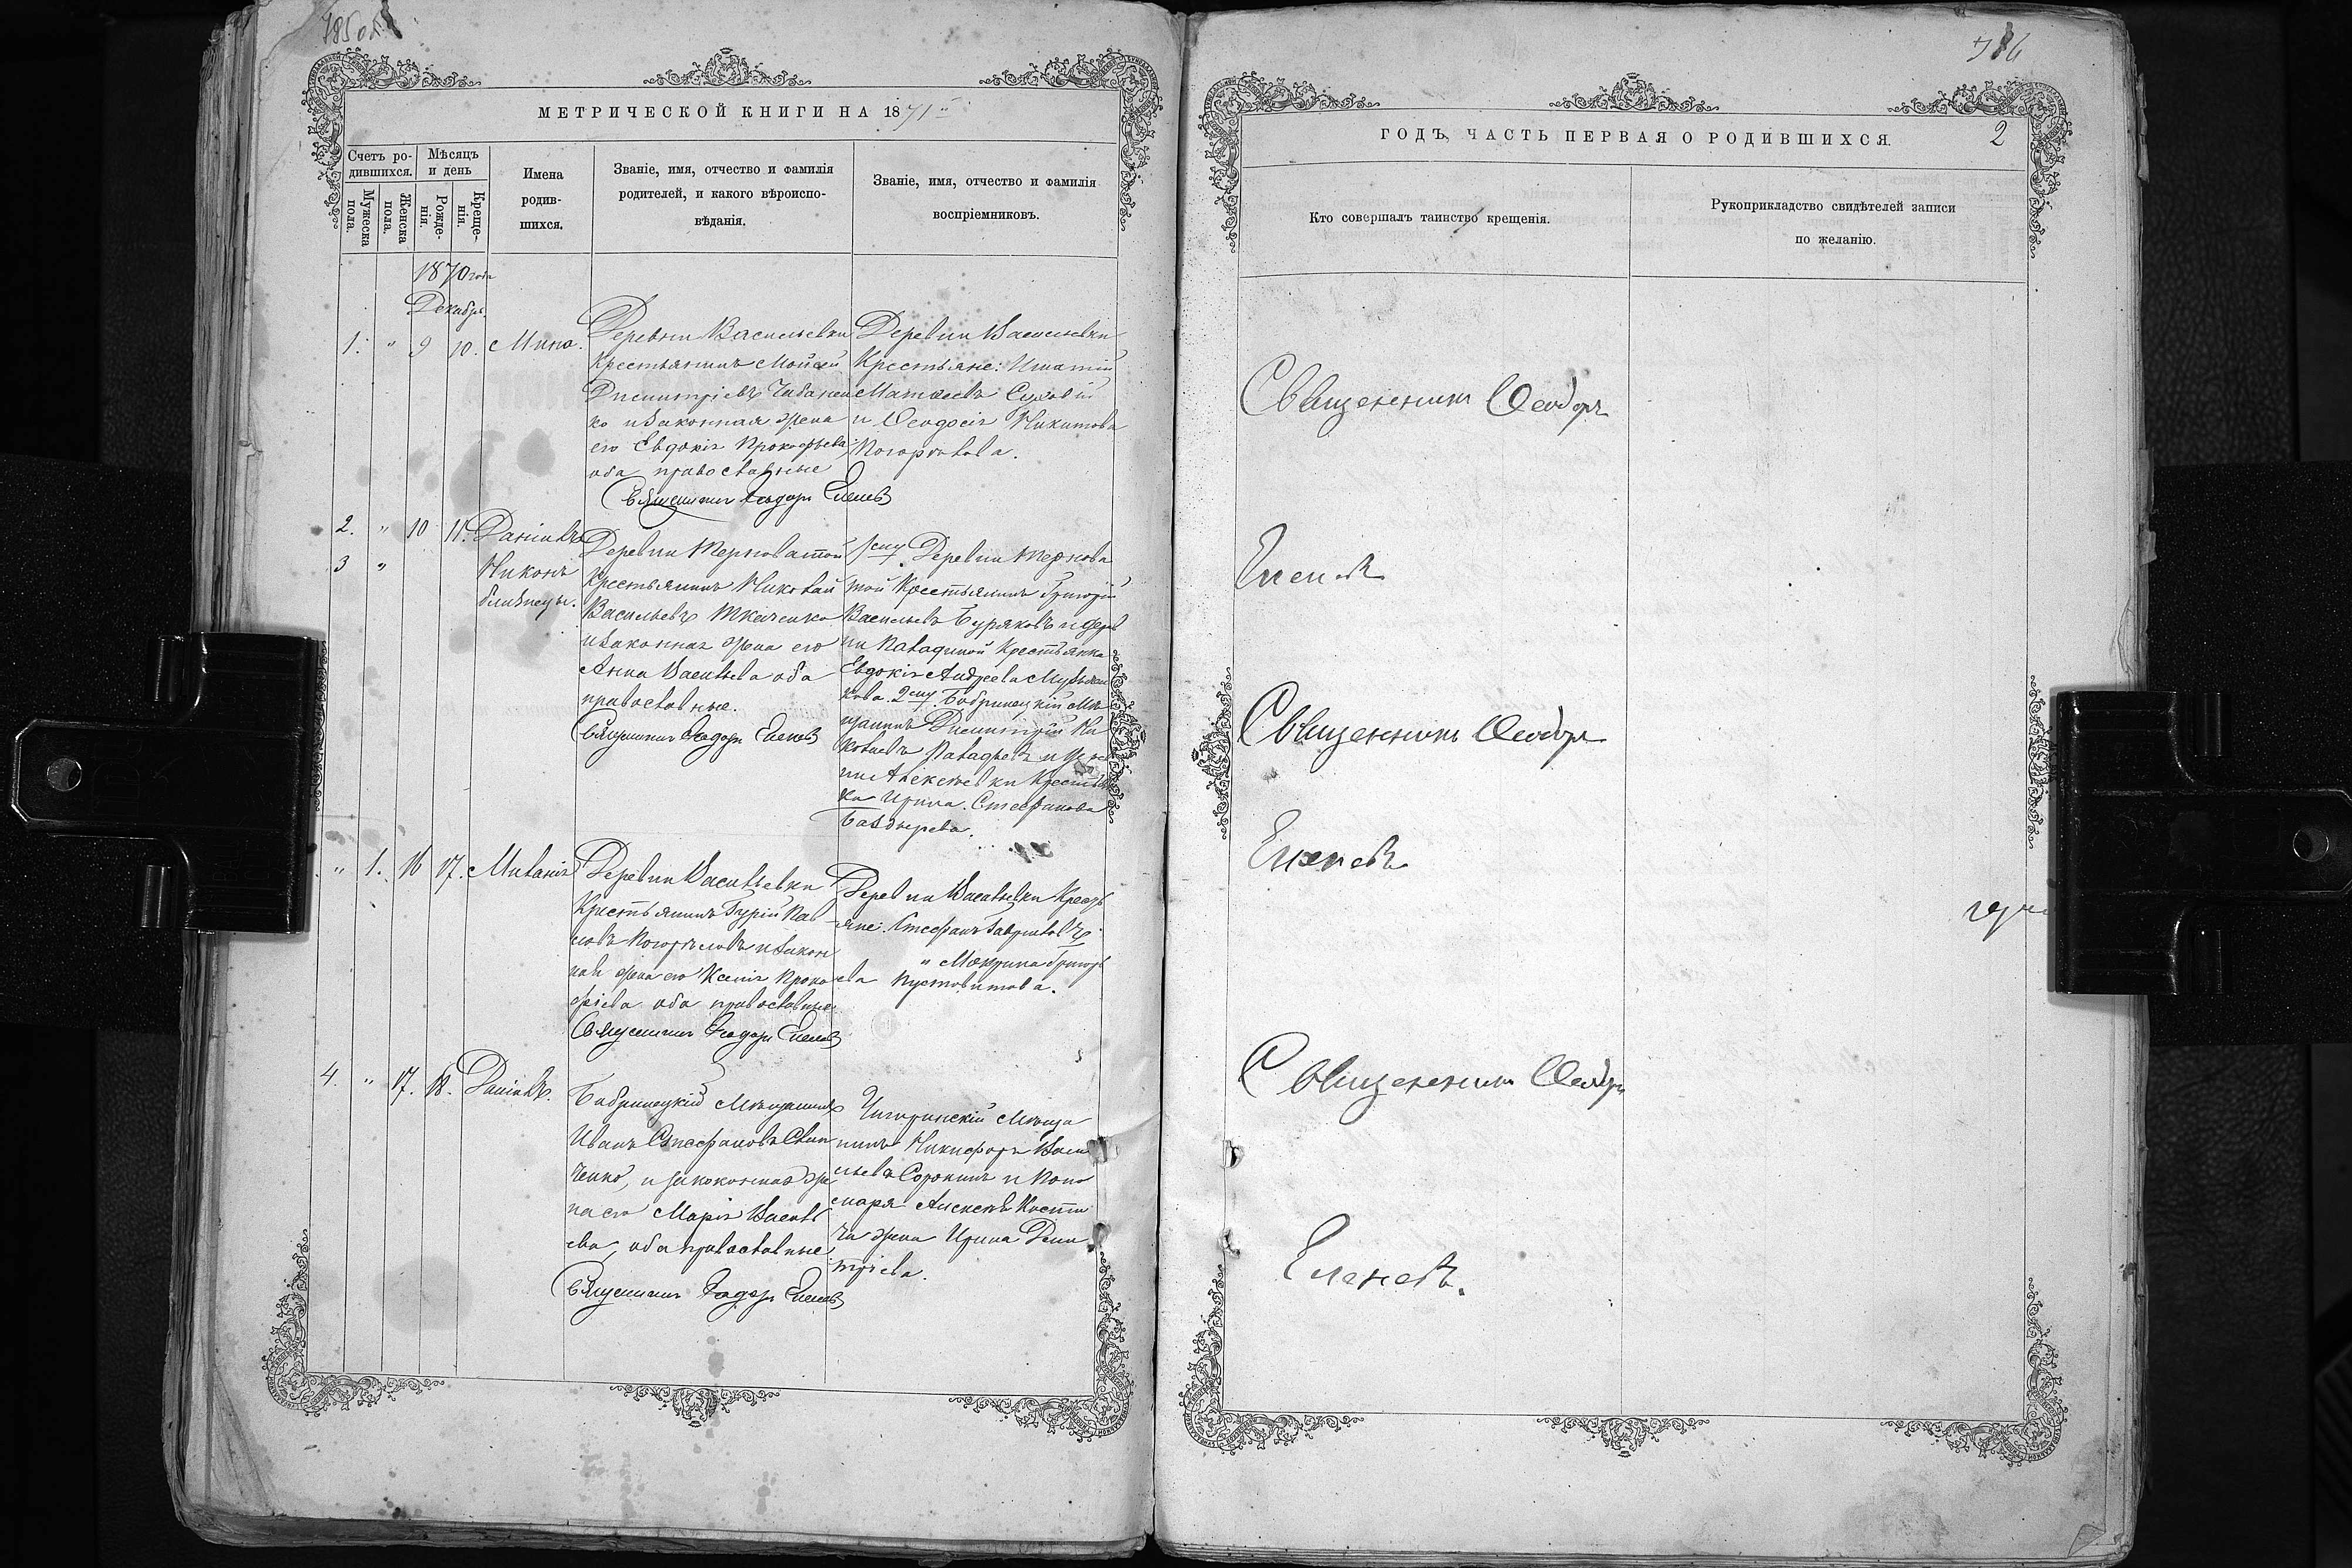 785 об
МЕТРИЧЕСКОЙ КНИГИ НА 1871
Счетъ ро-
дившихся.
Мѣсяцъ
и день
Мужеска
пола.
Женска
пола.
Рожде-
нія.
Креще-
нія.
Имена
родив-
шихся.
Званіе, имя, отчество и фамилія
родителей, и какого вѣроиспо-
вѣданія.
Званіе, имя, отчество и фамилія
воспріемниковъ.
1870 года
Декабрь.
1. " 9 10. Мина.
Деревни Васильевки
Крестьянинъ Мойсей
Димитріевъ Чабанен
ко и законная жена
его Евдокія Прокофьева
оба православные
Священникъ Ѳеодоръ Еленевъ
Деревни Васильевки
Крестьяне: Игнатій
Матвеевъ
и Ѳеодосія Никитова
Погорѣлова.
2. " 10 11. Даніилъ
3 "
Никонъ
близнецы.
Деревни Терноватой
Крестьянинъ Николай
Васильевъ Ткаченко
и законная жена его
Анна Васильева оба
православные.
Священникъ Ѳеодоръ Еленевъ
1му. Деревни Тернова
той Крестьянинъ Григорій
Васильевъ Буряковъ и дерев
ни Крестьянка
Евдокія Андреева
кова. 2му. Бобринецкій Мѣ
щанинъ Димитрій Ни
колаевъ и дерев
ни Алексѣевки Крестьян
ка Ирина Стефанова
" 1. 16 17. Миланія
Деревни Васильевки
Крестьянинъ Гурій Пав
ловъ Погорѣловъ и закон
ная жена его Ксенія Проко
фіева оба православные
Священникъ Ѳеодоръ Еленевъ
Деревни Васильевки Кресть
яне: Стефанъ Гавриловъ
и Мокрина Григорь
ева Пустовитова.
4. " 17. 18. Даніилъ.
Бобринецкій Мѣщанинъ
Иванъ Стефановъ
ченко, и законная же
на его Марія Василь
ева, оба православные
Священникъ Ѳеодоръ Еленевъ
Чигринскій Мѣща
нинъ Никифоръ Васи
льевъ Сорокинъ и Поно
маря Алексея
жена Ирина Дими
тріева.
786
ГОДЪ, ЧАСТЬ ПЕРВАЯ О РОДИВШИХСЯ.
2
Кто совершалъ таинство крещенія.
Рукоприкладство свидѣтелей записи
по желанію.
Священникъ Ѳеодоръ
Еленевъ
Священникъ Ѳеодоръ
Еленевъ
Священникъ Ѳеодоръ
Еленевъ.